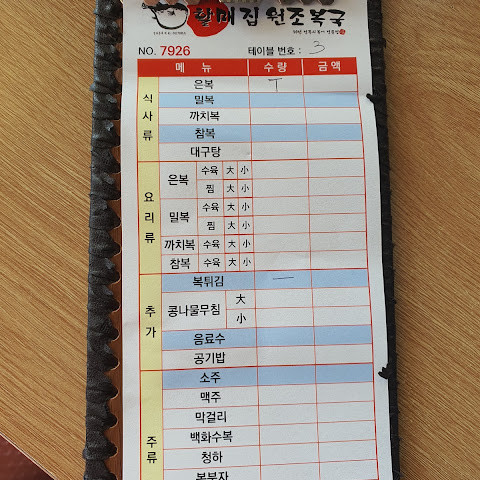 할매집 원조복국
NO. 7926 테이블 번호 : 3
메 뉴 수 량 금 액
식사류
은복 T
밀복
까치복
참복
대구탕
요리류
은복 수육 大 小
찜 大 小
밀복 수육 大 小
찜 大 小
까치복 수육 大 小
참복 수육 大 小
추가
복튀김 一
콩나물무침 大
小
음료수
공기밥
주류
소주
맥주
막걸리
백화수복
청하
복분자